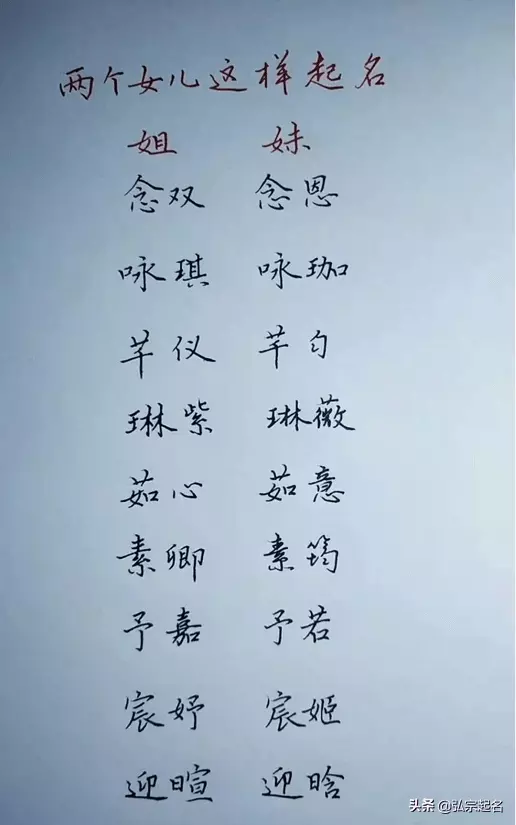 两个女儿这样起名
姐 妹
念双 念恩
咏琪 咏珈
芊仪 芊匀
琳紫 琳薇
茹心 茹意
素卿 素筠
予嘉 予若
宸妤 宸姬
迎暄 迎晗
头条 @弘宗起名